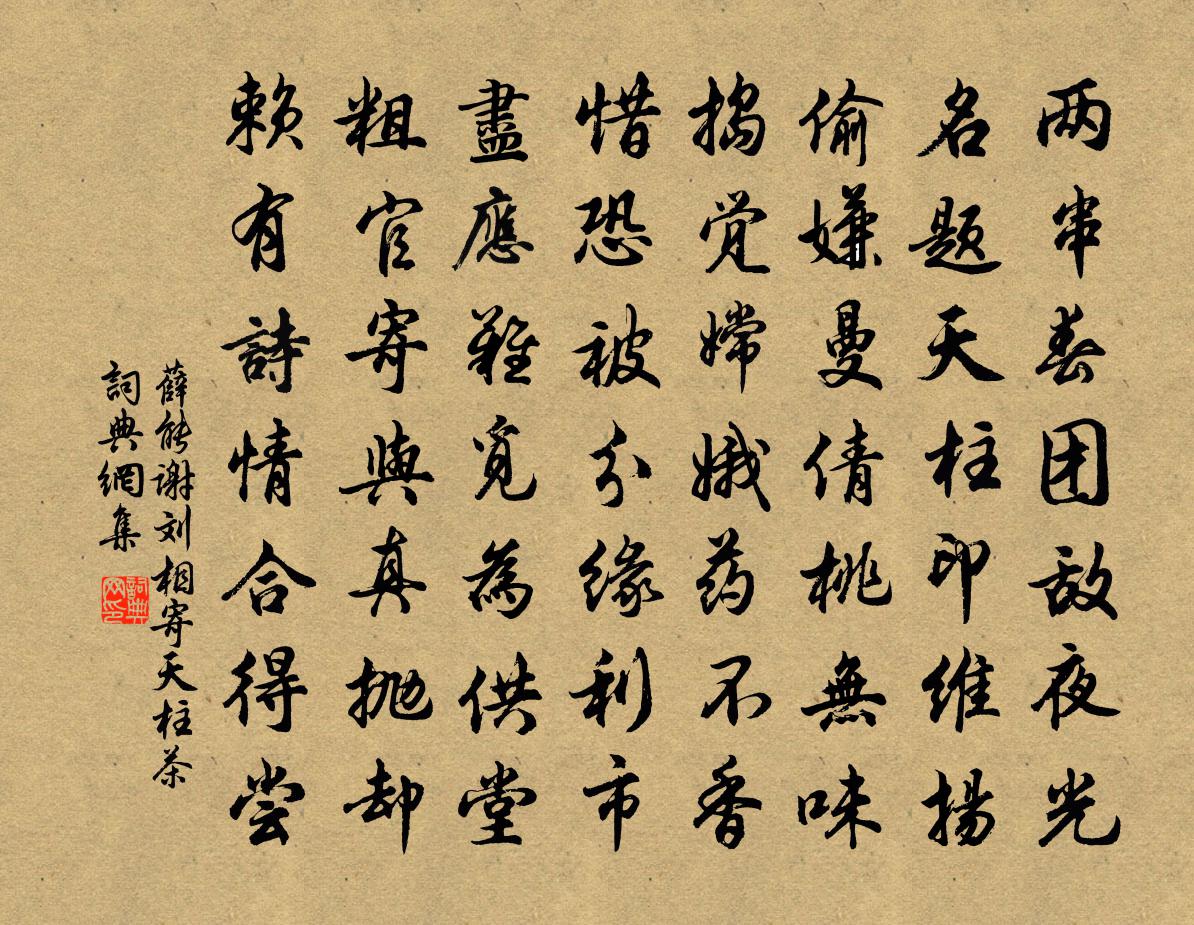 两串春团敌夜光
名题天柱印维揚
偷嫌曼倩桃無味
搗觉嫦娥药不香
惜恐被分缘利市
盡應難覓為供堂
粗官寄與真抛却
赖有詩情合得尝
薛能谢刘相寄天柱茶
詞典網集
詞典
网印